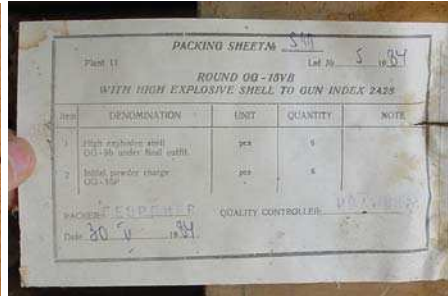 PACKING SHEET №
Plant 11 Lot № 5 1984
ROUND OG-15VB
WITH HIGH EXPLOSIVE SHELL TO GUN INDEX 2A28
Item DENOMINATION UNIT QUANTITY NOTE
1 High explosive shell pcs 6
OG-9B under final outfit.
2 Initial powder charge pcs 6
OG-15P
PACKER: QUALITY CONTROLLER:
Date 30 V 1984.